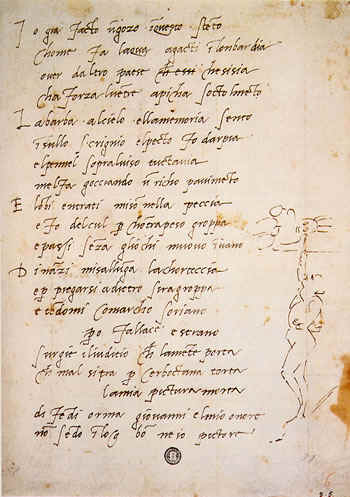 I o gia facto ngozo ī questo stēto
chome fa lacqua agacti ī lonbardia
over daltro paese che sisia
cha forza lvētre apicha socto lmēto
La barba alcielo ellamemoria sento
ī sullo scrignio elpecto fo darpia
elpennel sopraluiso tuctavia
melfa gocciando ū richo pauimēto
E lobi entrati miso nella peccia
e fo delcul p chōtrapeso groppa
e passi seza gliochi muovo ī vano
D ināzi misallūga lachorteccia
e p piegarsi adietro siragroppa
e tēdomi comarcho soriano
po fallace e strano
surgie iliudicio ch lamēte porta
ch mal sitra p cerboctana torta
lamia pictura morta
difēdi orma giovanni elmio onore
nō sēdo ī loco bō ne io pictore